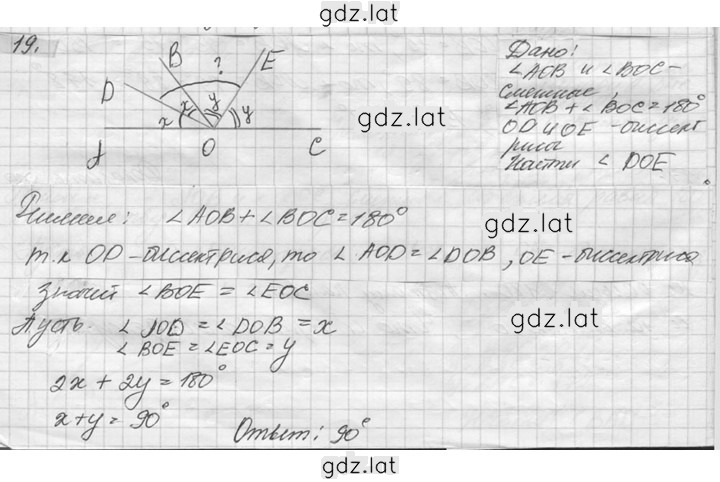 gdz.lat
19.
B
E
?
D
x
x
y
y
A
O
C
gdz.lat
Дано:
∠AOB и ∠BOC-
смежные,
∠AOB + ∠BOC = 180°
OD и OE - биссект
риса
Найти ∠DOE
Решение: ∠AOB + ∠BOC = 180°
gdz.lat
т.к OD - биссектриса, то ∠AOD = ∠DOB, OE - биссектриса
значит ∠BOE = ∠EOC
Пусть ∠AOD = ∠DOB = x
gdz.lat
∠BOE = ∠EOC = y
2x + 2y = 180°
x + y = 90°
Ответ: 90°
gdz.lat